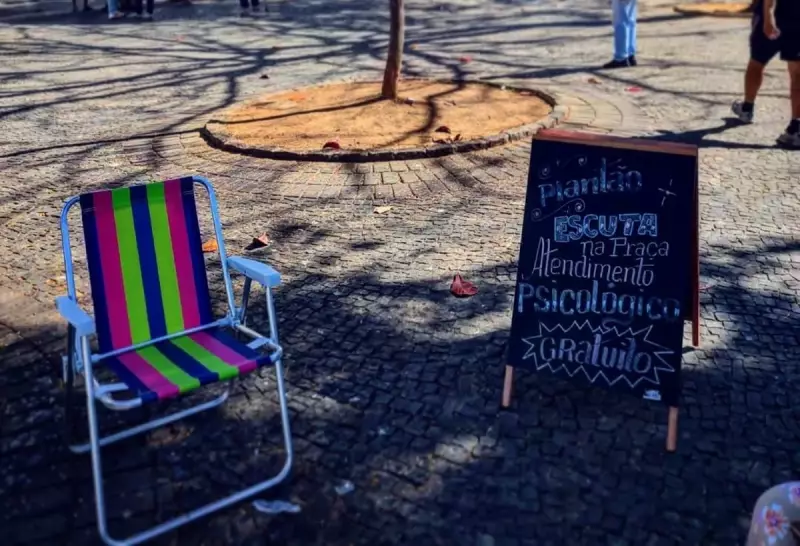 plantão
ESCUTA
na Praça
Atendimento
Psicológico
Gratuito